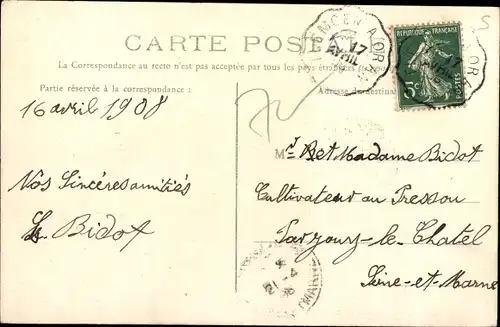 CARTE POSTALE
La Correspondance au recto n'est pas acceptée par tous les pays étrangers
Partie réservée à la correspondance :
Adresse du destinat
16 avril 1908
Nos Sincères amitiés
L. Bidot
Mr et Madame Bidot
Cultivateur au Pressou
Jarzouy-le-Chatel
Seine-et-Marne
TLEMCEN A ORAN
17
AVRIL
REPUBLIQUE FRANÇAISE
5c
POSTES
5